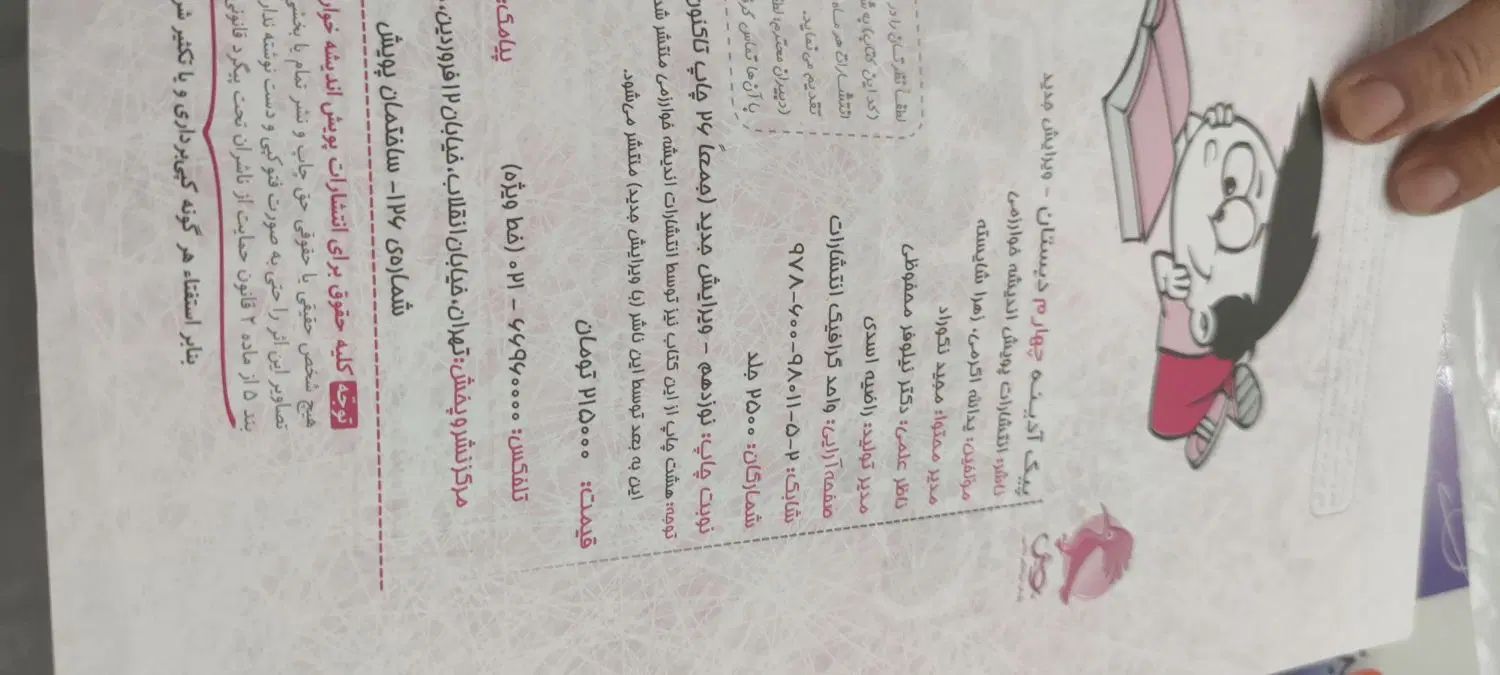 پیک آدینه چهارم دبستان - ویرایش جدید
ناشر: انتشارات پویش اندیشه خوارزمی
مولفین: یدالله اکرمی، زهرا شایسته
مدیر محتوا: مجید نکوراد
ناظر علمی: دکتر نیلوفر محفوظی
مدیر تولید: راضیه اسدی
صفحه آرایی: واحد گرافیک انتشارات
شابک: ۲-۵-۹۸۰۱۱-۶۰۰-۹۷۸
شمارگان: ۲۵۰۰ جلد
نوبت چاپ: نوزدهم - ویرایش جدید (جمعاً ۲۶ چاپ تاکنون
توجه: هشت چاپ از این کتاب نیز توسط انتشارات اندیشه خوارزمی منتشر شد
این به بعد توسط این ناشر (با ویرایش جدید) منتشر می‌شود.
قیمت: ۲۱۵۰۰۰ تومان
لطفاً نظرتان را در
(کد این کتاب) به ش
انتشارات هر ماه
تقدیم می‌نماید.
(دبیران محترم، لطف
با آن‌ها تماس گر
تلفکس: ۶۶۹۶۰۰۰۰ - ۰۲۱ (خط ویژه)
پیامک:
مرکز نشر و پخش: تهران، خیابان انقلاب، خیابان ۱۲ فروردین،
شماره‌ی ۱۲۶- ساختمان پویش
توجه کلیه حقوق برای انتشارات پویش اندیشه خوار
هیچ شخص حقیقی یا حقوقی حق چاپ و نشر تمام یا بخشی
تصاویر این اثر را حتی به صورت فتوکپی و دست نوشته ندار
بند ۵ از ماده ۲ قانون حمایت از ناشران تحت پیگرد قانونی
بنابر استفتاء هر گونه کپی‌برداری و یا تکثیر شر